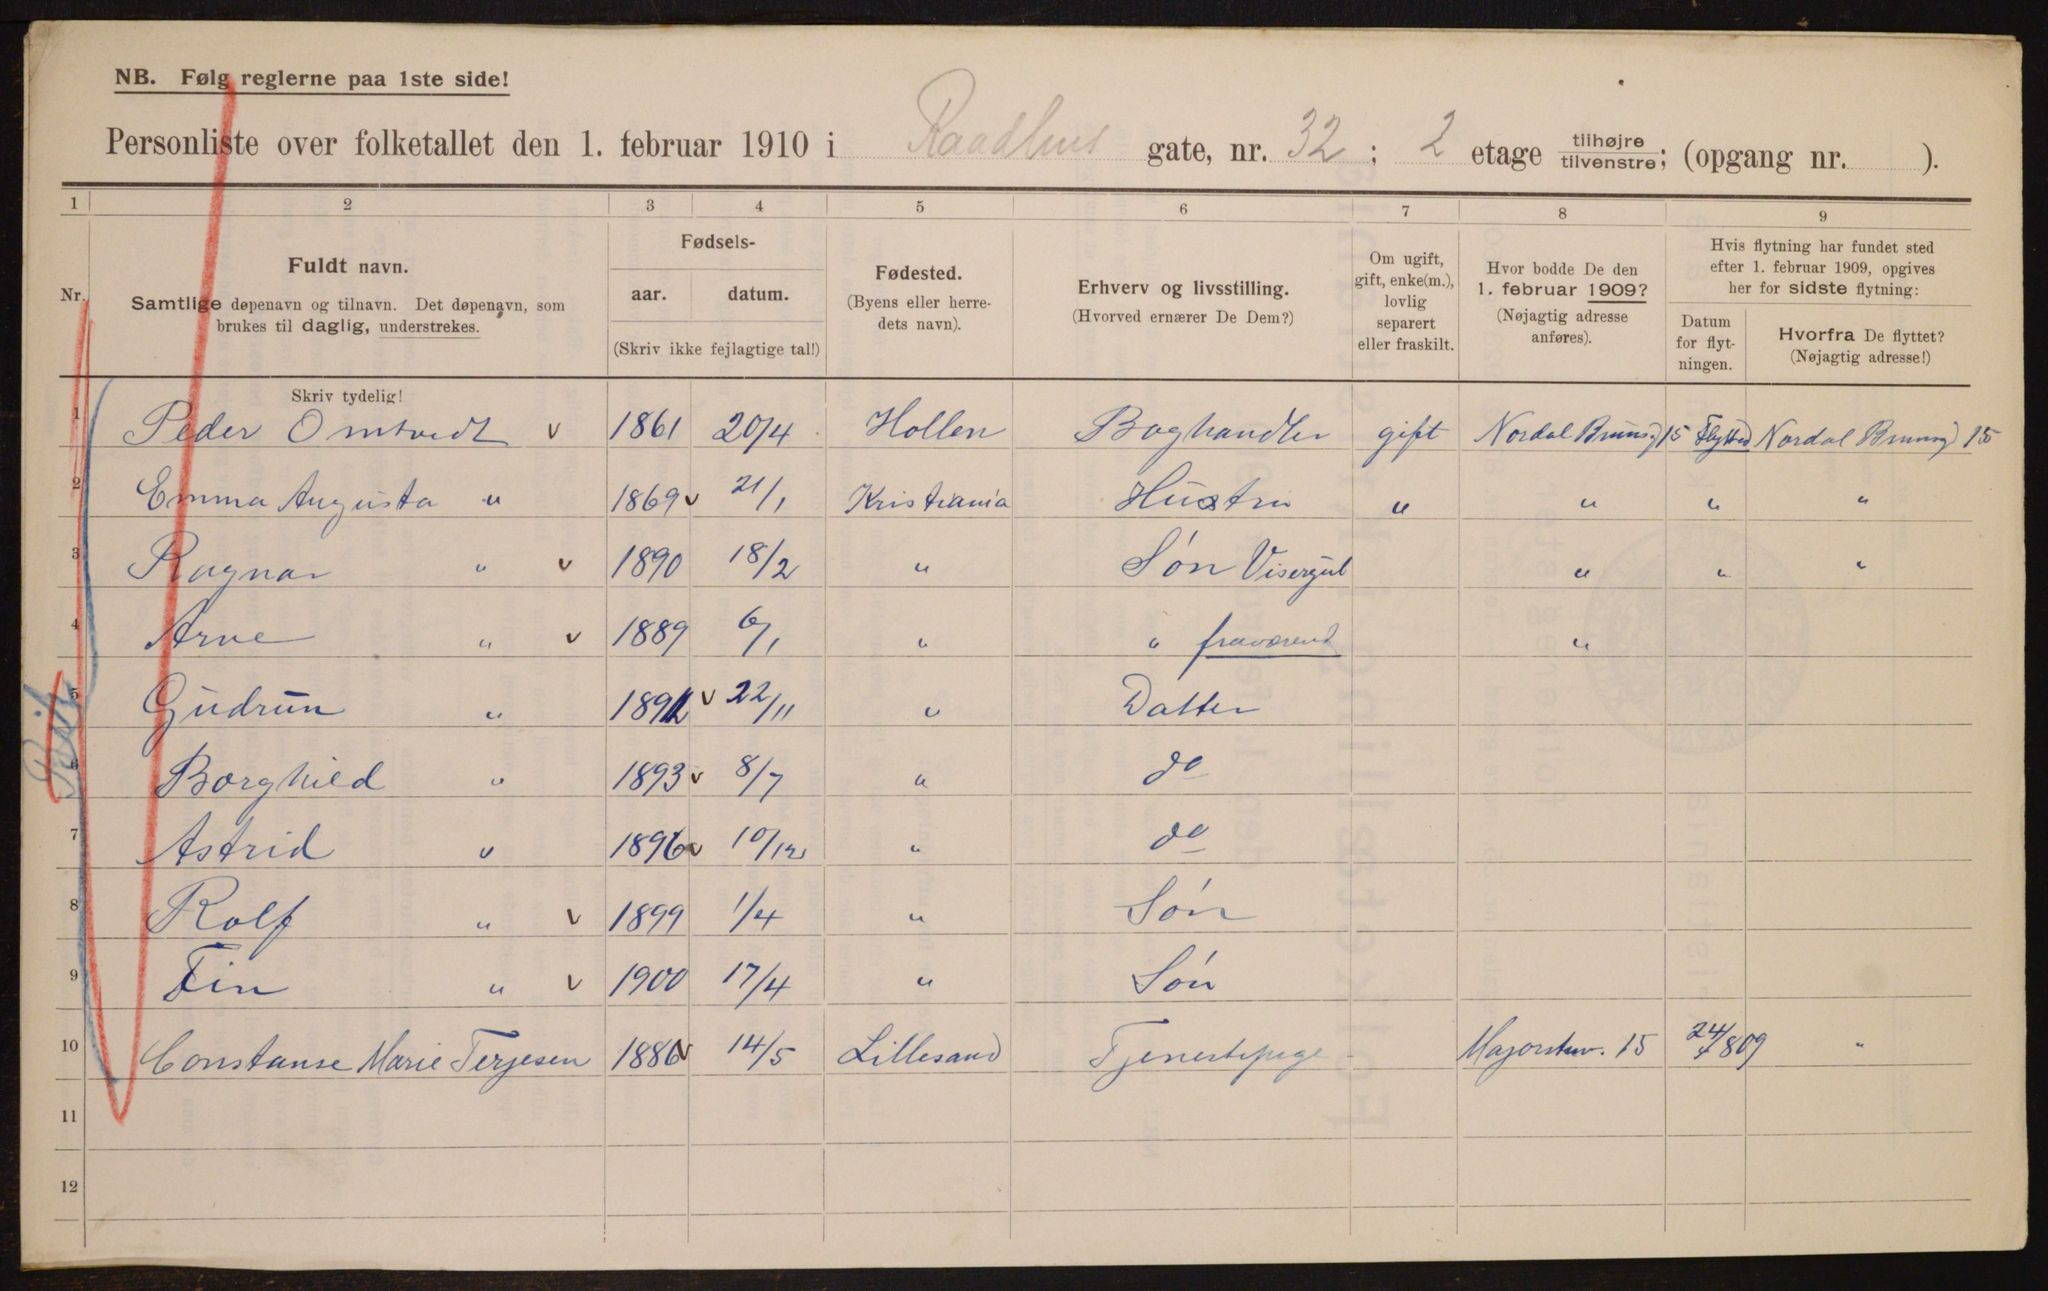 NB. Følg reglerne paa 1ste side!
Personliste over folketallet den 1. februar 1910 i Raadhus gate, nr. 32; 2 etage tilhøjre tilvenstre; (opgang nr. ).
1 2 3 4 5 6 7 8 9
Nr.
Fuldt navn.
Samtlige døpenavn og tilnavn. Det døpenavn, som
brukes til daglig, understrekes.
Skriv tydelig!
Fødsels-
aar. datum.
(Skriv ikke fejlagtige tal!)
Fødested.
(Byens eller herre-
dets navn).
Erhverv og livsstilling.
(Hvorved ernærer De Dem?)
Om ugift,
gift, enke(m.),
lovlig
separert
eller fraskilt.
Hvor bodde De den
1. februar 1909?
(Nøjagtig adresse
anføres).
Hvis flytning har fundet sted
efter 1. februar 1909, opgives
her for sidste flytning:
Datum
for flyt-
ningen.
Hvorfra De flyttet?
(Nøjagtig adresse!)
1 Peder Omtvedt v 1861 20/4 Hollen Boghandler gift Nordal Brunsg 15 Flyttet Nordal Brunsg 15
2 Emma Augusta " 1869 v 21/1 Kristiania Hustru " " " "
3 Ragnar " v 1890 18/2 " Søn Visergut " " "
4 Arne " v 1889 6/1 " " fraværend "
5 Gudrun " 1892 v 22/11 " Datter
6 Borghild " 1893 v 8/7 " do
7 Astrid " 1896 v 10/12 " do
8 Rolf " v 1899 1/4 " Søn
9 Fin " v 1900 17/4 " Søn
10 Constanse Marie Terjesen 1886 v 14/5 Lillesand Tjenestepige Majorstuv. 15 24/8 09 "
11
12